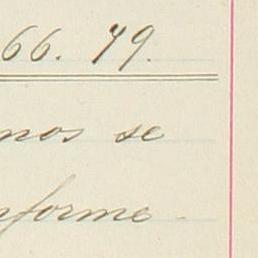 66. 79.
nos se
nforme -